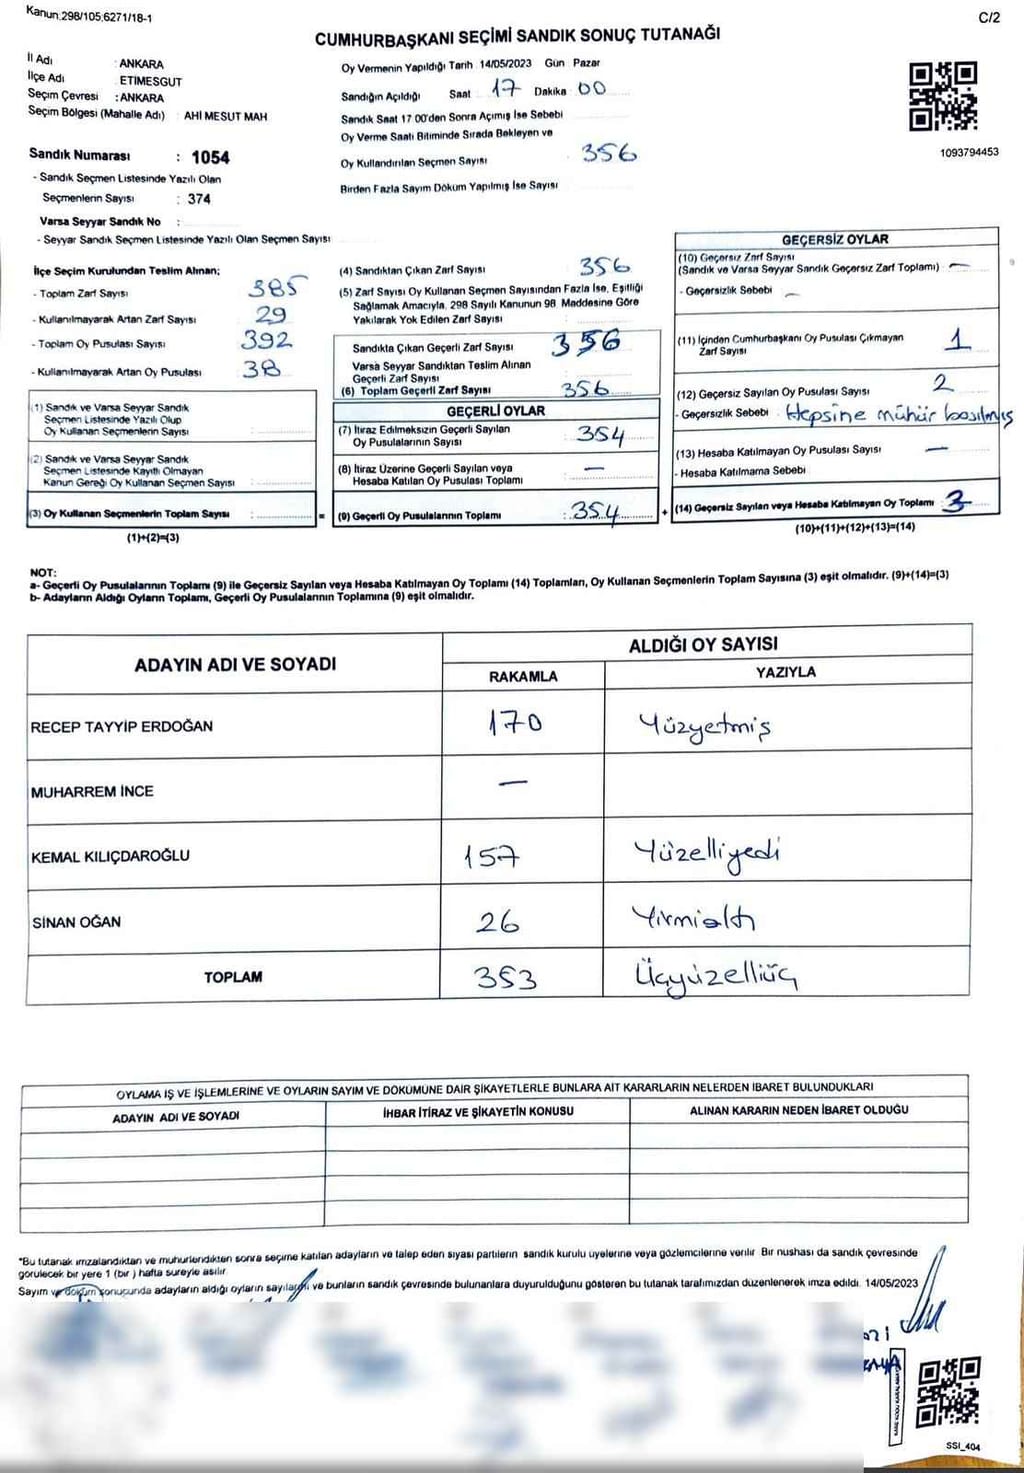 Kanun.298/105.6271/18-1
C/2
CUMHURBAŞKANI SEÇİMİ SANDIK SONUÇ TUTANAĞI
İl Adı : ANKARA
İlçe Adı : ETIMESGUT
Seçim Çevresi : ANKARA
Seçim Bölgesi (Mahalle Adı) : AHI MESUT MAH
Sandık Numarası : 1054
- Sandık Seçmen Listesinde Yazılı Olan
Seçmenlerin Sayısı : 374
Varsa Seyyar Sandık No :
- Seyyar Sandık Seçmen Listesinde Yazılı Olan Seçmen Sayısı
Oy Vermenin Yapıldığı Tarih 14/05/2023 Gün Pazar
Sandığın Açıldığı Saat 17 Dakika 00
Sandık Saat 17 00'den Sonra Açımış İse Sebebi
Oy Verme Saati Bitiminde Sırada Bekleyen ve
Oy Kullandırılan Seçmen Sayısı 356
Birden Fazla Sayım Döküm Yapılmış İse Sayısı
1093794453
İlçe Seçim Kurulundan Teslim Alınan;
- Toplam Zarf Sayısı 385
- Kullanılmayarak Artan Zarf Sayısı 29
- Toplam Oy Pusulası Sayısı 392
- Kullanılmayarak Artan Oy Pusulası 38
(1) Sandık ve Varsa Seyyar Sandık
Seçmen Listesinde Yazılı Olup
Oy Kullanan Seçmenlerin Sayısı :
(2) Sandık ve Varsa Seyyar Sandık
Seçmen Listesinde Kayıtlı Olmayan
Kanun Gereği Oy Kullanan Seçmen Sayısı :
(3) Oy Kullanan Seçmenlerin Toplam Sayısı : =
(1)+(2)=(3)
(4) Sandıktan Çıkan Zarf Sayısı 356
(5) Zarf Sayısı Oy Kullanan Seçmen Sayısından Fazla İse, Eşitliği
Sağlamak Amacıyla, 298 Sayılı Kanunun 98 Maddesine Göre
Yakılarak Yok Edilen Zarf Sayısı :
Sandıkta Çıkan Geçerli Zarf Sayısı 356
Varsa Seyyar Sandıktan Teslim Alınan
Geçerli Zarf Sayısı
(6) Toplam Geçerli Zarf Sayısı 356
GEÇERLİ OYLAR
(7) İtiraz Edilmeksizin Geçerli Sayılan
Oy Pusulalarının Sayısı : 354
(8) İtiraz Üzerine Geçerli Sayılan veya
Hesaba Katılan Oy Pusulası Toplamı : —
(9) Geçerli Oy Pusulalarının Toplamı : 354 +
GEÇERSİZ OYLAR
(10) Geçersiz Zarf Sayısı
(Sandık ve Varsa Seyyar Sandık Geçersiz Zarf Toplamı) : —
- Geçersizlik Sebebi : —
(11) İçinden Cumhurbaşkanı Oy Pusulası Çıkmayan
Zarf Sayısı 1
(12) Geçersiz Sayılan Oy Pusulası Sayısı 2
- Geçersizlik Sebebi : Hepsine mühür basılmış
(13) Hesaba Katılmayan Oy Pusulası Sayısı —
- Hesaba Katılmama Sebebi
(14) Geçersiz Sayılan veya Hesaba Katılmayan Oy Toplamı : 3
(10)+(11)+(12)+(13)=(14)
NOT:
a- Geçerli Oy Pusulalarının Toplamı (9) ile Geçersiz Sayılan veya Hesaba Katılmayan Oy Toplamı (14) Toplamları, Oy Kullanan Seçmenlerin Toplam Sayısına (3) eşit olmalıdır. (9)+(14)=(3)
b- Adayların Aldığı Oyların Toplamı, Geçerli Oy Pusulalarının Toplamına (9) eşit olmalıdır.
ADAYIN ADI VE SOYADI
ALDIĞI OY SAYISI
RAKAMLA YAZIYLA
RECEP TAYYİP ERDOĞAN 170 Yüzyetmiş
MUHARREM İNCE —
KEMAL KILIÇDAROĞLU 157 Yüzelliyedi
SİNAN OĞAN 26 Yirmialtı
TOPLAM 353 Üçyüzelliüç
OYLAMA İŞ VE İŞLEMLERİNE VE OYLARIN SAYIM VE DÖKÜMÜNE DAİR ŞİKAYETLERLE BUNLARA AİT KARARLARIN NELERDEN İBARET BULUNDUKLARI
ADAYIN ADI VE SOYADI İHBAR İTİRAZ VE ŞİKAYETİN KONUSU ALINAN KARARIN NEDEN İBARET OLDUĞU
*Bu tutanak imzalandıktan ve mühürlendikten sonra seçime katılan adayların ve talep eden siyasi partilerin sandık kurulu üyelerine veya gözlemcilerine verilir. Bir nüshası da sandık çevresinde
görülecek bir yere 1 (bir) hafta süreyle asılır.
Sayım ve döküm sonucunda adayların aldığı oyların sayıları ve bunların sandık çevresinde bulunanlara duyurulduğunu gösteren bu tutanak tarafımızdan düzenlenerek imza edildi. 14/05/2023
SSI_404